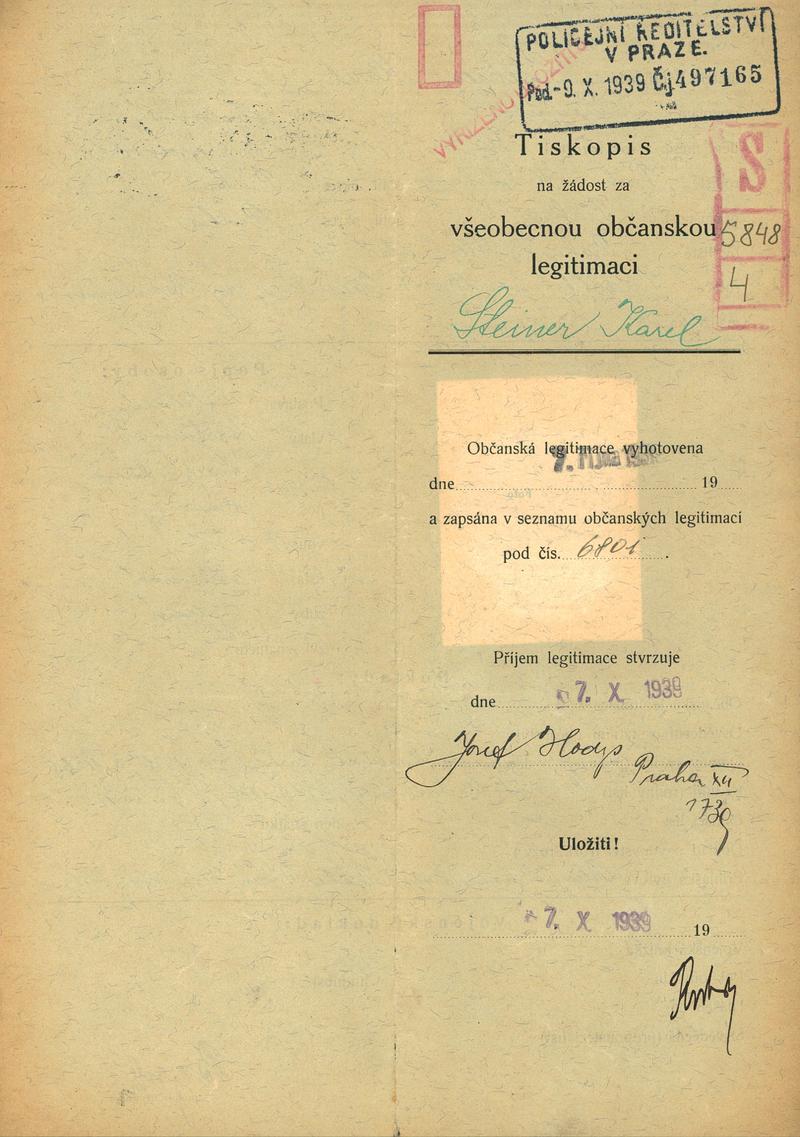 POLICEJNÍ ŘEDITELSTVÍ
V PRAZE.
Pod. -9. X. 1939 Čj 497165
Tiskopis
na žádost za
všeobecnou občanskou
legitimaci
S
5848
4
Steiner Karel
Občanská legitimace vyhotovena
7.
dne 19
a zapsána v seznamu občanských legitimací
pod čís. 6801 .
Příjem legitimace stvrzuje
dne 7. X 1939
Josef Hodys
Praha XII
1739
Uložiti!
7. X 1939 19